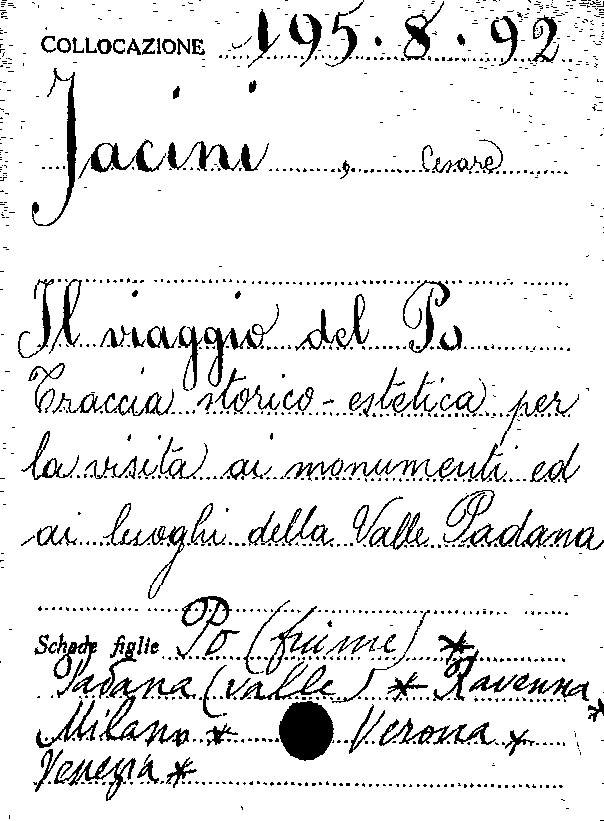 COLLOCAZIONE 195.8.92
Jacini, Cesare
Il viaggio del Po
Traccia storico-estetica per
la visita ai monumenti ed
ai luoghi della Valle Padana
Schede figlie Po (fiume) *
Padana (valle) * Ravenna *
Milano * Verona *
Venezia *